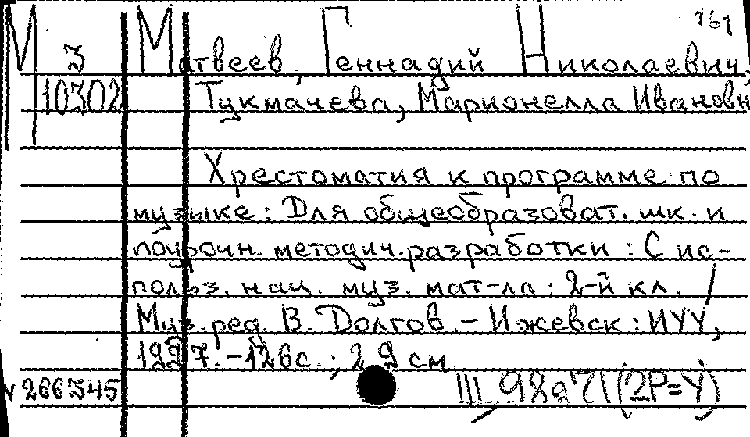 161
М 3 Матвеев, Геннадий Николаевич,
10302 Тукмачева, Марионелла Ивановн
Хрестоматия к программе по
музыке: Для общеобразоват. шк. и
поурочн. методич. разработки: С ис-
польз. нац. муз. мат-ла: 2-й кл. /
Муз. ред. В. Долгов. - Ижевск: ИУУ,
1997. - 126с.; 29 см
266345 III, 98а71(2Р=У)